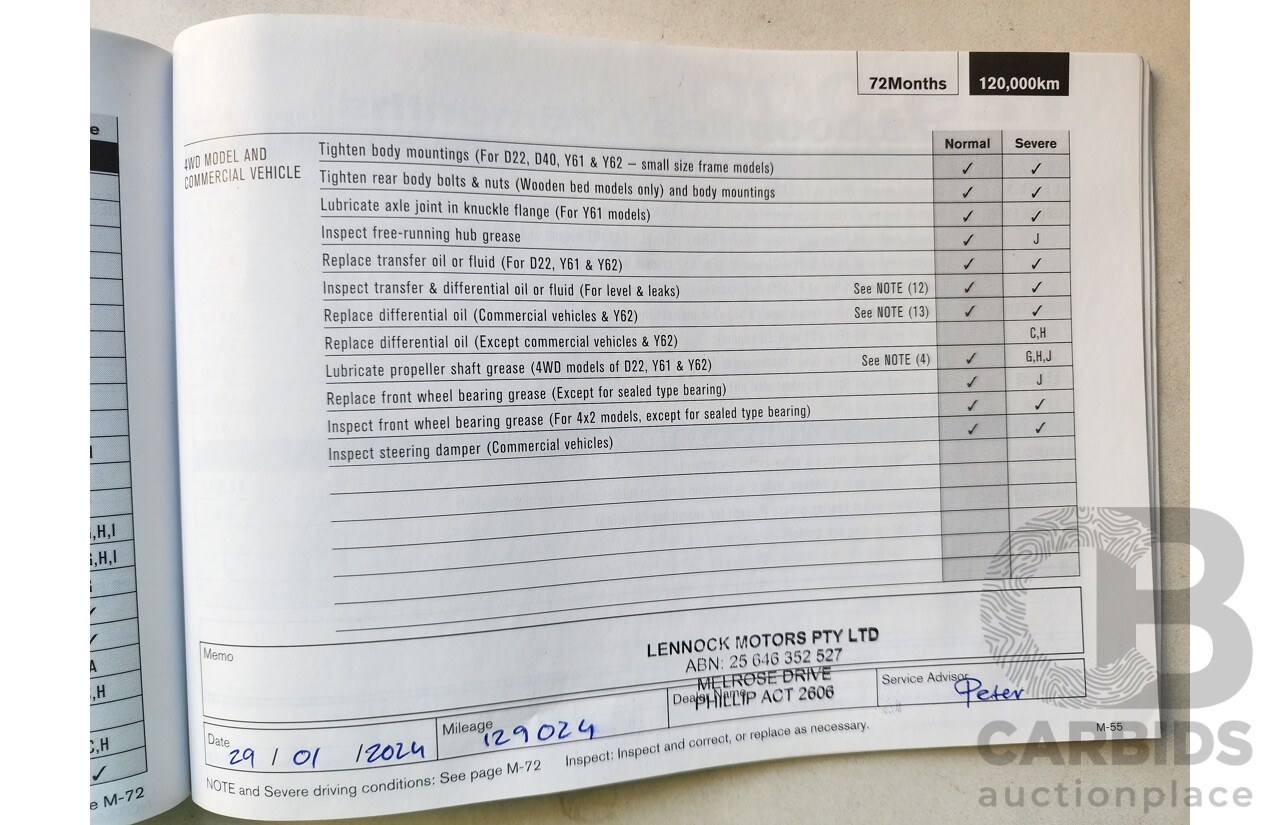 72Months 120,000km
Normal Severe
4WD MODEL AND
COMMERCIAL VEHICLE
Tighten body mountings (For D22, D40, Y61 & Y62 – small size frame models) ✓ ✓
Tighten rear body bolts & nuts (Wooden bed models only) and body mountings ✓ ✓
Lubricate axle joint in knuckle flange (For Y61 models) ✓ ✓
Inspect free-running hub grease ✓ J
Replace transfer oil or fluid (For D22, Y61 & Y62) ✓ ✓
Inspect transfer & differential oil or fluid (For level & leaks) See NOTE (12) ✓ ✓
Replace differential oil (Commercial vehicles & Y62) See NOTE (13) ✓ ✓
Replace differential oil (Except commercial vehicles & Y62) C,H
Lubricate propeller shaft grease (4WD models of D22, Y61 & Y62) See NOTE (4) ✓ G,H,J
Replace front wheel bearing grease (Except for sealed type bearing) ✓ J
Inspect front wheel bearing grease (For 4x2 models, except for sealed type bearing) ✓ ✓
Inspect steering damper (Commercial vehicles) ✓ ✓
Memo
LENNOCK MOTORS PTY LTD
ABN: 25 646 352 527
MELROSE DRIVE
PHILLIP ACT 2606
Dealer Name
Service Advisor
Peter
Date 29 / 01 / 2024
Mileage 129024
NOTE and Severe driving conditions: See page M-72 Inspect: Inspect and correct, or replace as necessary.
M-55
e
,H,I
,H,I
✓
✓
A
,H
C,H
✓
e M-72
CARBIDS
auctionplace